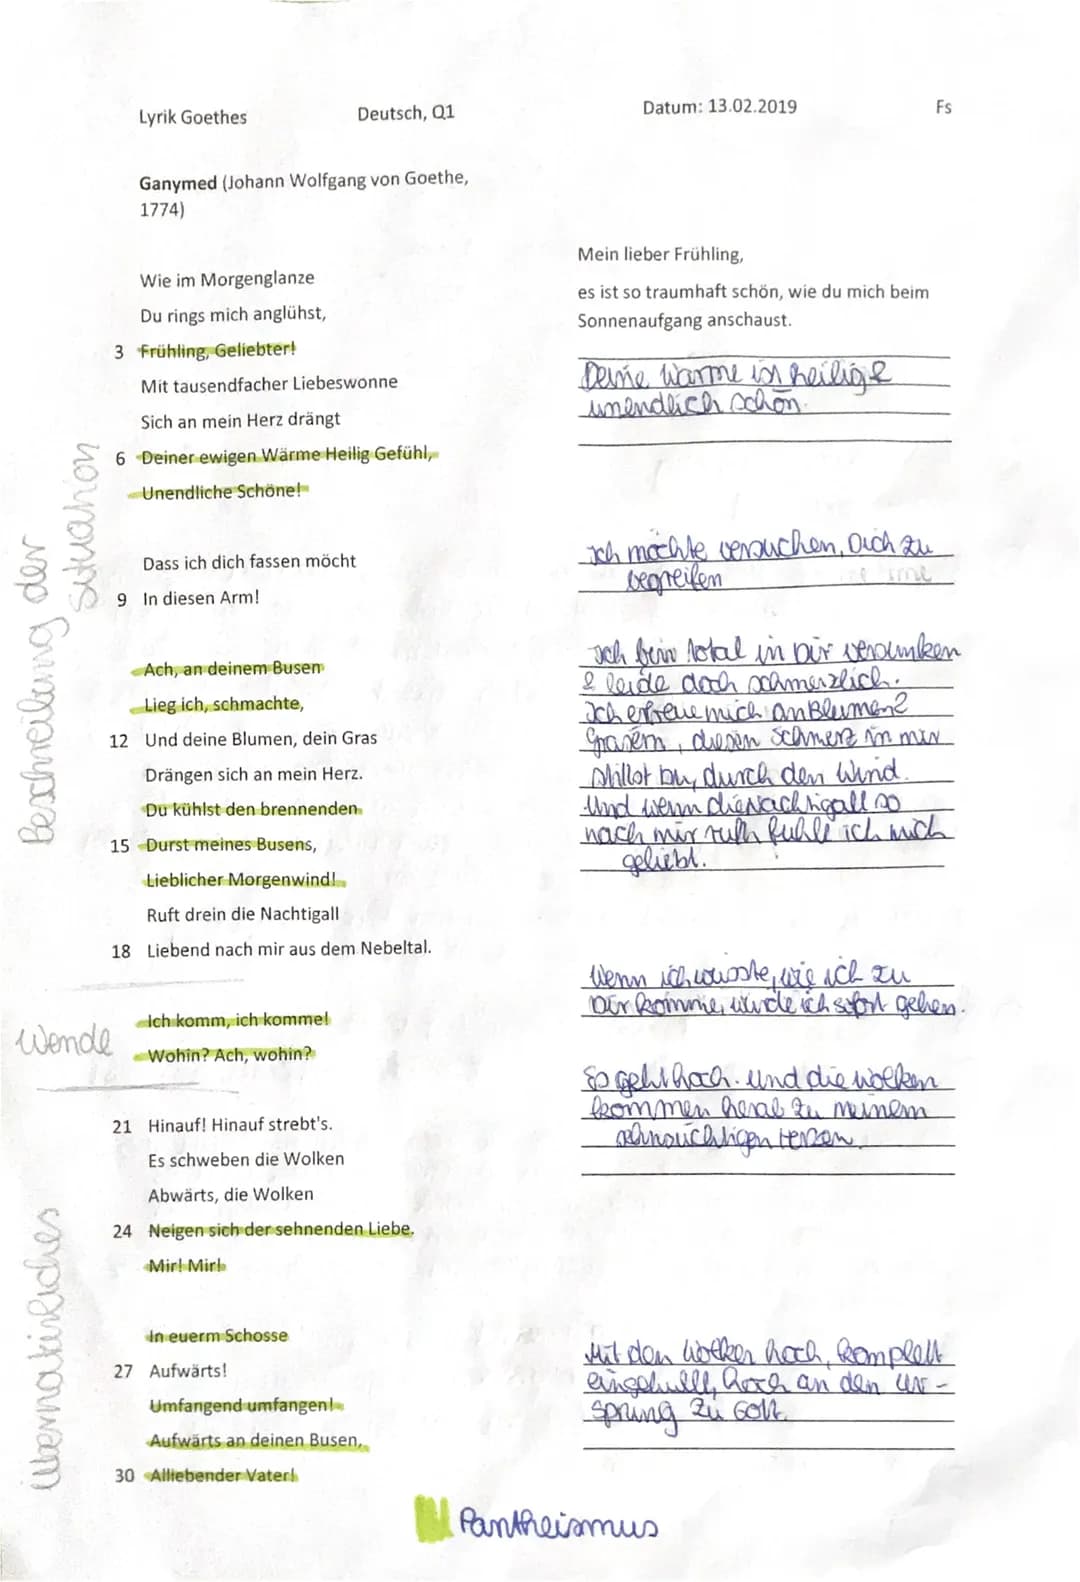 Lyrik Goethes Deutsch, Q1 Datum: 13.02.2019 Fs
Ganymed (Johann Wolfgang von Goethe,
1774)
Wie im Morgenglanze
Du rings mich anglühst,
3 Frühling, Geliebter!
Mit tausendfacher Liebeswonne
Sich an mein Herz drängt
6 Deiner ewigen Wärme Heilig Gefühl,
Unendliche Schöne!
Dass ich dich fassen möcht
9 In diesen Arm!
Ach, an deinem Busen
Lieg ich, schmachte,
12 Und deine Blumen, dein Gras
Drängen sich an mein Herz.
Du kühlst den brennenden
15 Durst meines Busens,
Lieblicher Morgenwind!
Ruft drein die Nachtigall
18 Liebend nach mir aus dem Nebeltal.
Ich komm, ich komme!
Wohin? Ach, wohin?
21 Hinauf! Hinauf strebt's.
Es schweben die Wolken
Abwärts, die Wolken
24 Neigen sich der sehnenden Liebe.
Mir! Mir!
In euerm Schosse
27 Aufwärts!
Umfangend umfangen!
Aufwärts an deinen Busen,
30 Alliebender Vater!
Beschreibung der
Situation
Wende
übernatürliches
Mein lieber Frühling,
es ist so traumhaft schön, wie du mich beim
Sonnenaufgang anschaust.
Deine Wärme ist heilig &
unendlich schön.
Ich möchte versuchen, Dich zu
begreifen
Ich bin total in Dir versunken
& leide doch schmerzlich.
Ich erfreue mich an Blumen &
Gräsern, diesen Schmerz in mir
stillst du, durch den Wind.
Und wenn die Nachtigall so
nach mir ruft fühle ich mich
geliebt.
Wenn ich wüsste, wie ich zu
Dir komme, würde ich sofort gehen.
Es geht hoch. Und die Wolken
kommen herab zu meinem
sehnsüchtigen Herzen.
Mit den Wolken hoch, komplett
eingehüllt, hoch an den Ur-
sprung zu Gott.
Pantheismus